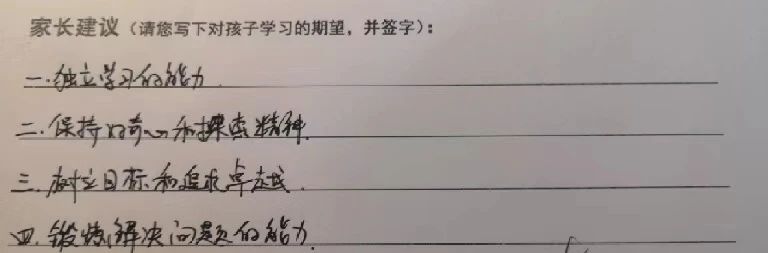 家长建议（请您写下对孩子学习的期望，并签字）：
一.独立学习的能力.
二.保持好奇心和探索精神.
三.树立目标和追求卓越.
四.锻炼解决问题的能力.